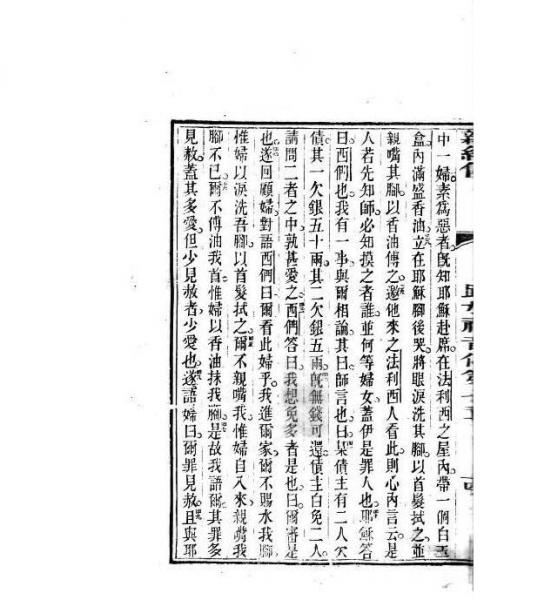 中一婦素為惡者。旣知耶穌赴席。在法利西之屋內。帶一個白玉
盒內滿盛香油。立在耶穌腳後哭。將眼淚洗其腳。以首髮拭之。並
親嘴其腳。以香油傅之。邀他來之法利西人看此。則心內言云。是
人若先知師。必知摸之者誰。並何等婦女。蓋伊是罪人也。耶穌答
曰。西們也。我有一事。與爾相論。其曰。師言也。曰。某債主有二人欠
債。其一欠銀五十兩。其二欠銀五兩。旣無錢可還。債主白免二人。
請問二者之中。孰甚愛之。西們答曰。我想免多者是也。曰。爾審是
也。遂回顧婦。對語西們曰。爾看此婦乎。我進爾家。爾不賜水我腳。
惟婦以淚洗吾腳。以首髮拭之。爾不親嘴我。惟婦自入來親嘴我
腳不已。爾不傅油我首。惟婦以香油抹我腳。是故我語爾。其罪多
見赦。蓋其多愛。但少見赦者。少愛也。遂語婦曰。爾罪見赦。且與耶